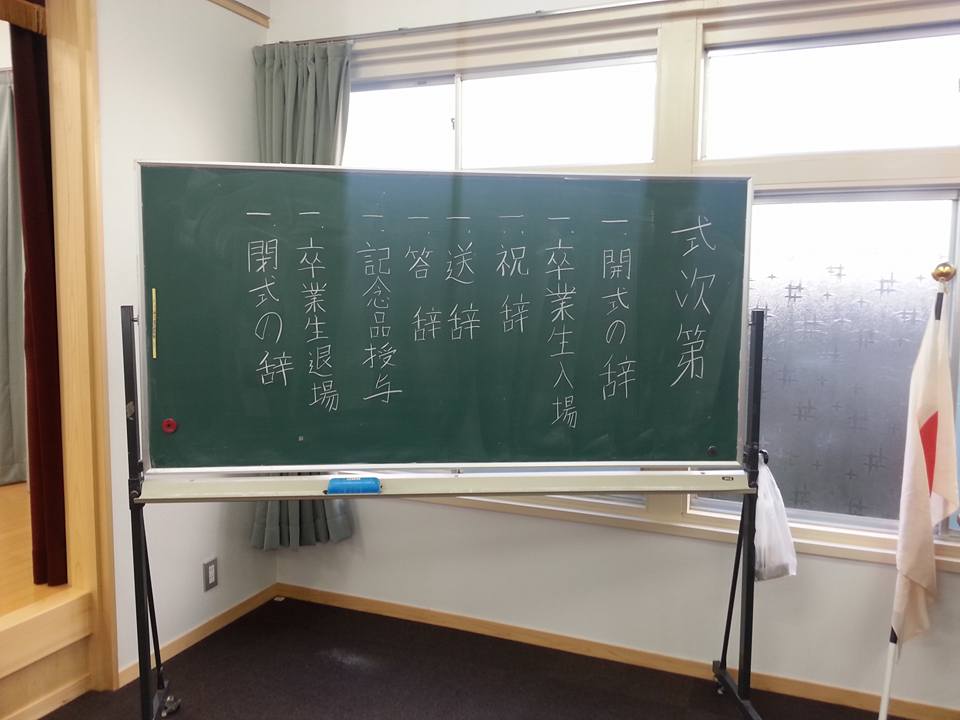 式次第
一. 開式の辞
一. 卒業生入場
一. 祝辞
一. 送辞
一. 答辞
一. 記念品授与
一. 卒業生退場
一. 閉式の辞